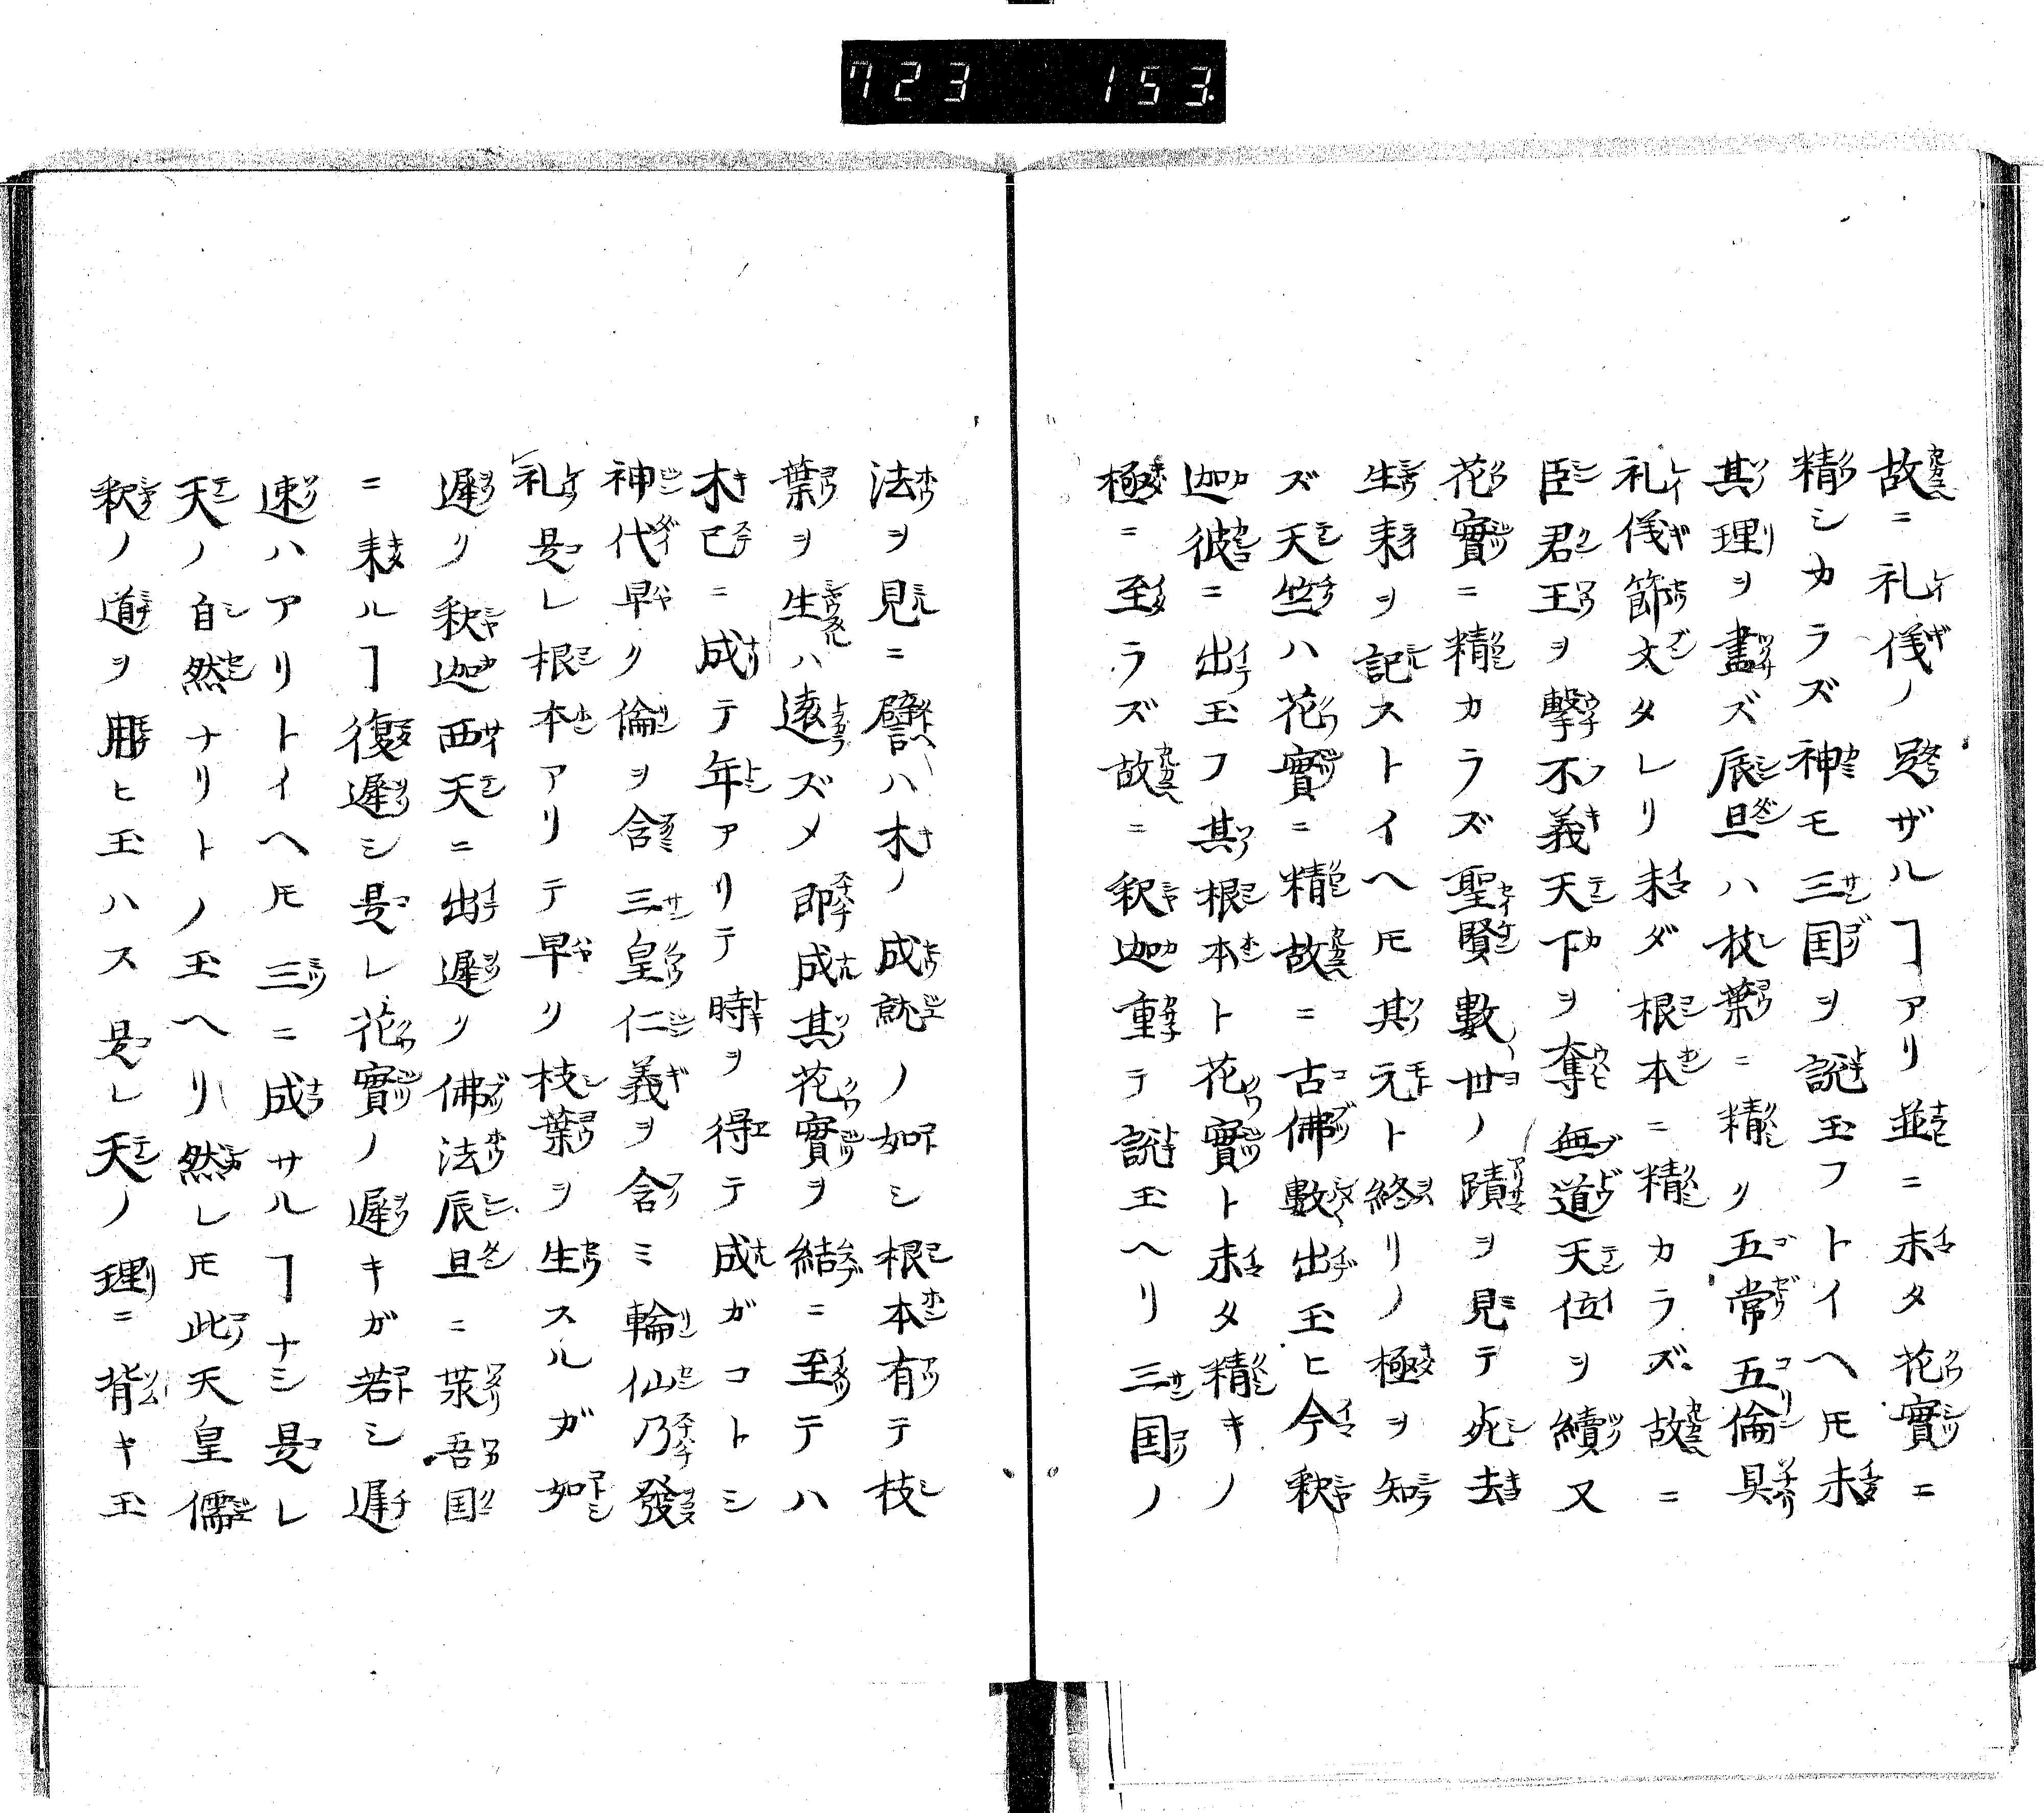 723 153.
故ニ礼儀ノ足ザルヿアリ並ニ未タ花實ニ
精シカラズ神モ三国ヲ説玉フトイヘ𪜈未
其理ヲ盡ズ辰旦ハ枝葉ニ精リ五常五倫具
礼儀節文タレリ未ダ根本ニ精カラズ故ニ
臣君王ヲ撃不義天下ヲ奪無道天位ヲ續又
花實ニ精カラズ聖賢數世ノ蹟ヲ見テ死去
生耒ヲ記ストイヘ𪜈其元ト終リノ極ヲ知
ズ天竺ハ花實ニ精故ニ古佛數出玉ヒ今釈
迦彼ニ出玉フ其根本ト花實ト未タ精キノ
極ニ至ラズ故ニ釈迦重テ説玉ヘリ三国ノ
法ヲ見ニ譬ハ木ノ成就ノ如シ根本有テ枝
葉ヲ生ハ遠ズメ即成其花實ヲ結ニ至テハ
木已ニ成テ年アリテ時ヲ得テ成ガコトシ
神代早ク倫ヲ含三皇仁義ヲ含ミ輪仙乃發
礼是レ根本アリテ早リ枝葉ヲ生スルガ如
遅リ釈迦西天ニ出遅リ佛法辰旦ニ衆吾国
ニ耒ルヿ復遅シ是レ花實ノ遅キガ若シ遅
速ハアリトイヘ𪜈三ニ成サルヿナシ是レ
天ノ自然ナリトノ玉ヘリ然レ𪜈此天皇儒
釈ノ道ヲ用ヒ玉ハス是レ天ノ理ニ背キ玉